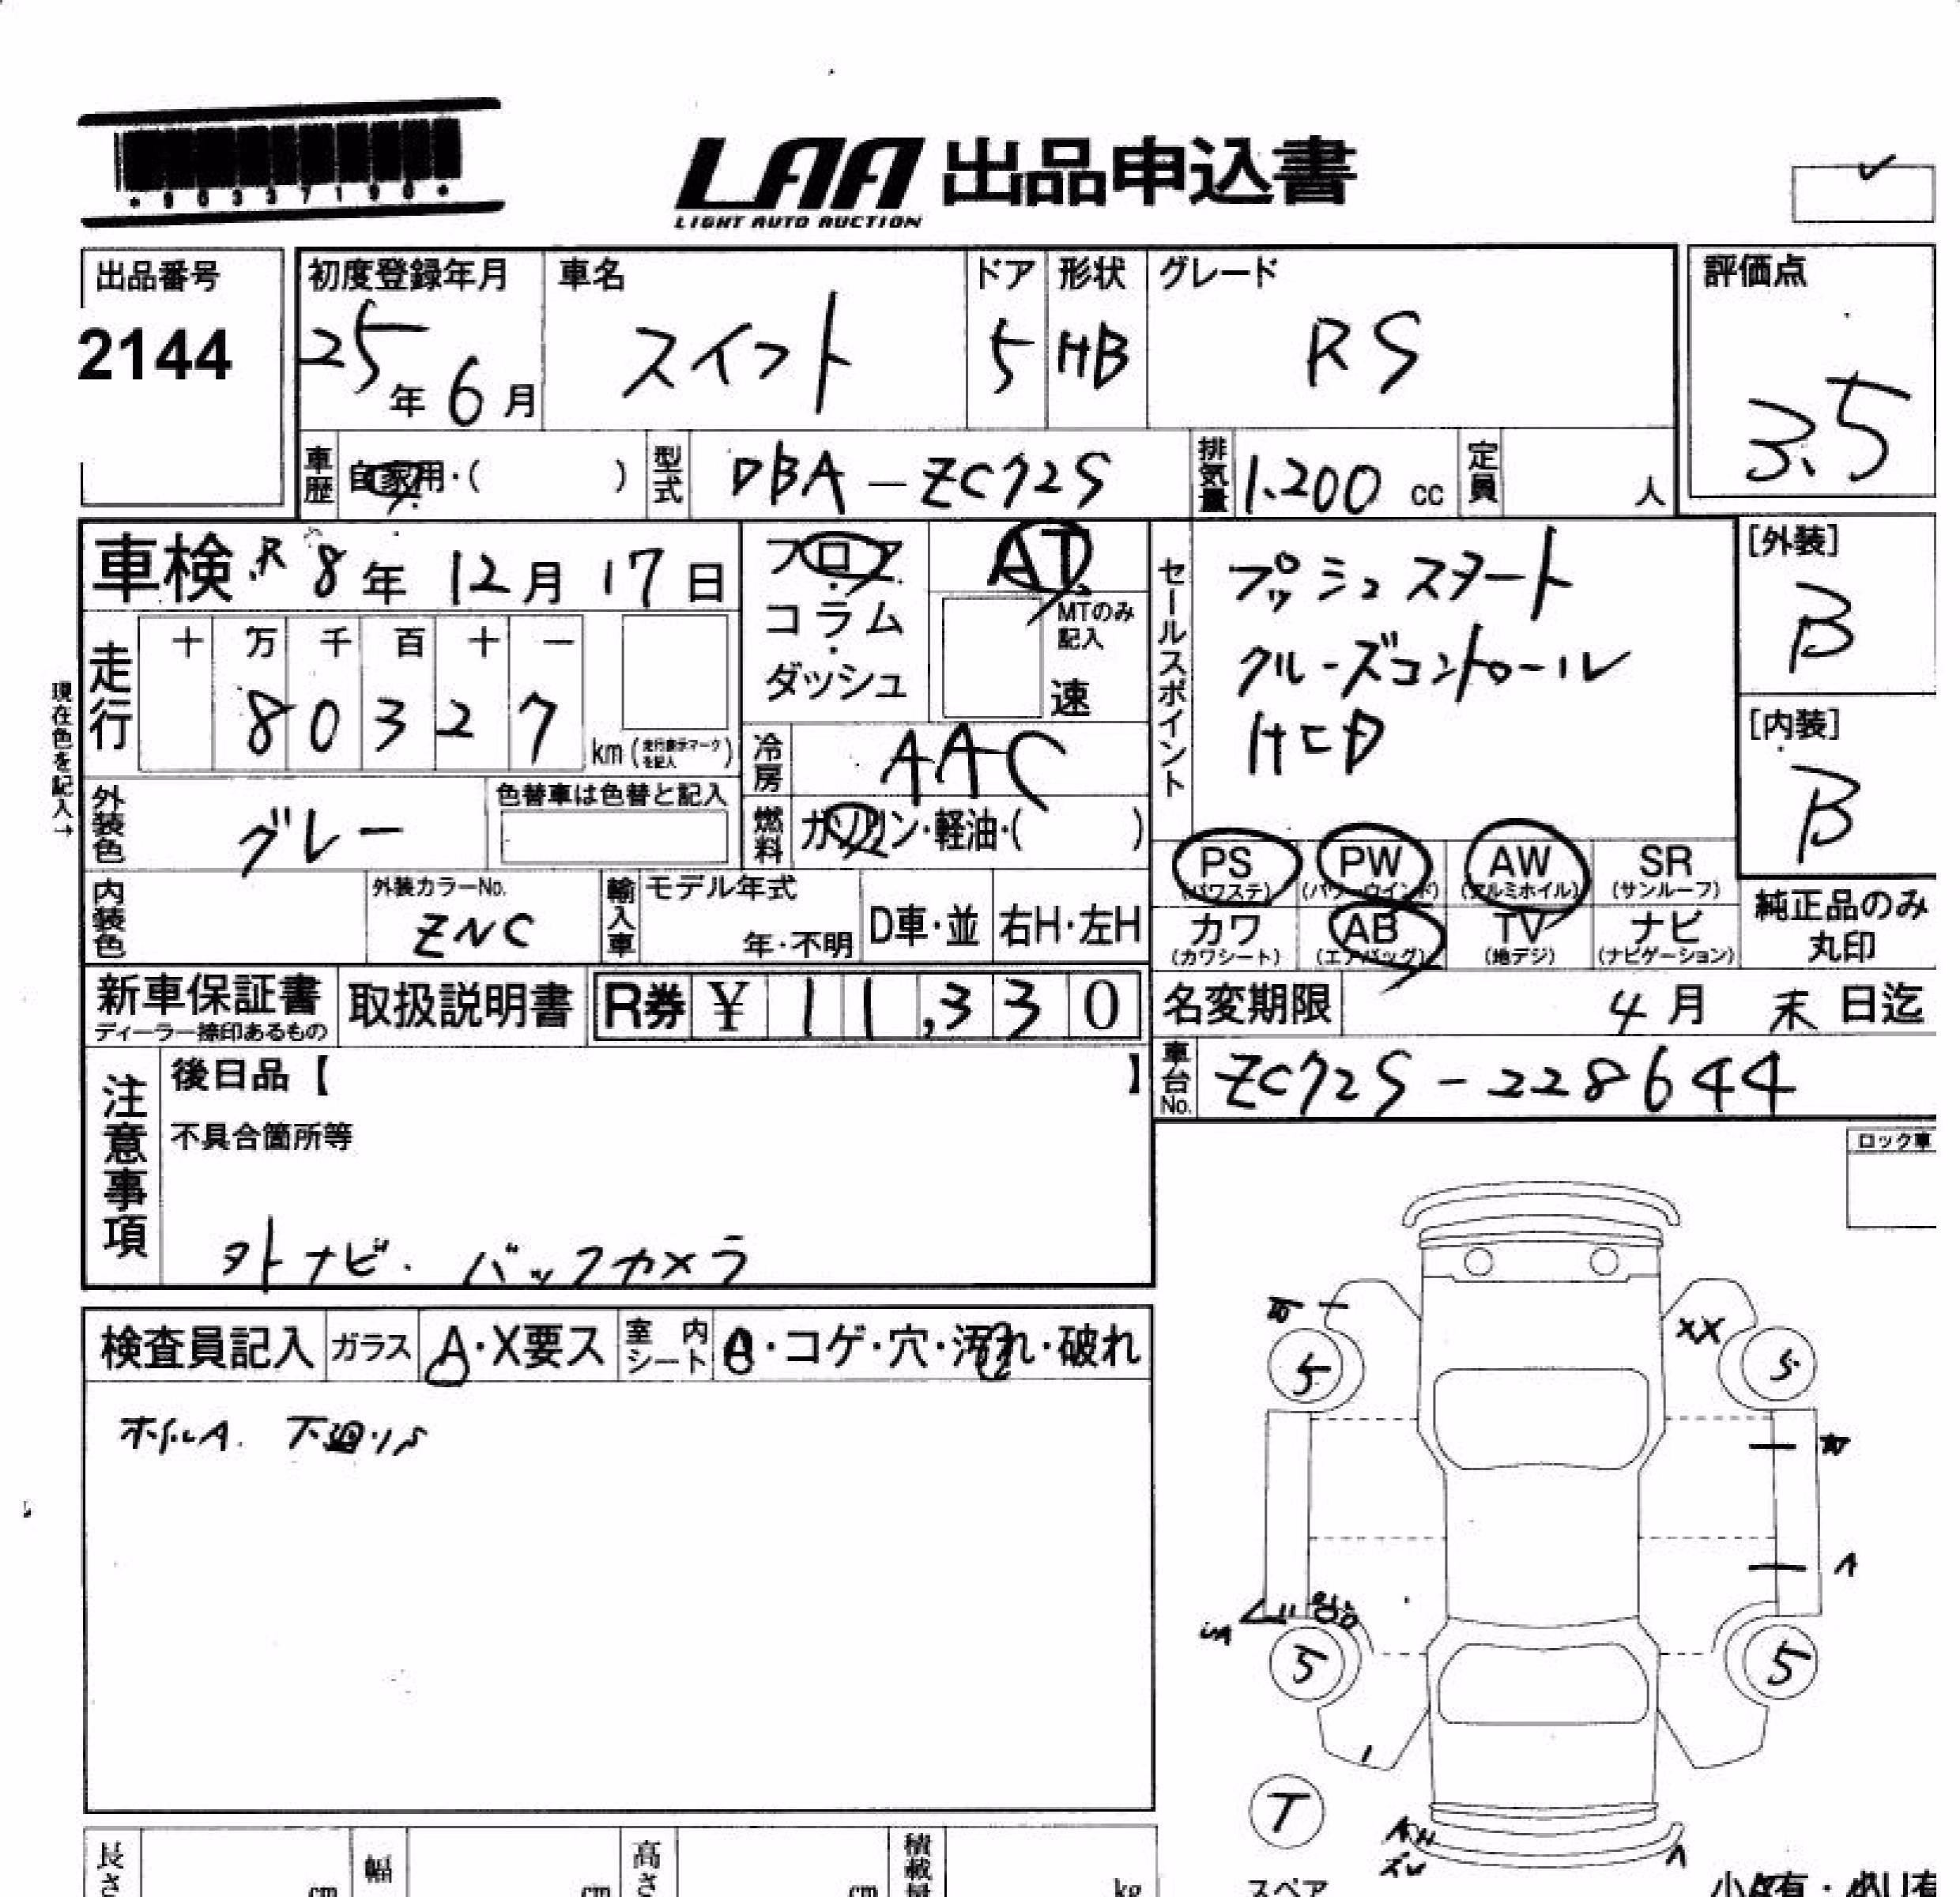 LAA 出品申込書
LIGHT AUTO AUCTION
出品番号
2144
初度登録年月
25年6月
車名
スイフト
ドア
5
形状
HB
グレード
RS
評価点
3.5
車歴
自家用・( )
型式
DBA-ZC72S
排気量
1.200 cc
定員
人
車検 R 8年 12月 17日
フロア
コラム
ダッシュ
AT
MTのみ記入
速
セールスポイント
プッシュスタート
クルーズコントロール
HID
[外装]
B
[内装]
B
現在色を記入→
走行
十 万 千 百 十 一
8 0 3 2 7
km (走行表示マークを記入)
冷房
AAC
外装色
グレー
色替車は色替と記入
燃料
ガソリン・軽油・( )
PS
(パワステ)
PW
(パワーウインド)
AW
(アルミホイル)
SR
(サンルーフ)
カワ
(カワシート)
AB
(エアバッグ)
TV
(地デジ)
ナビ
(ナビゲーション)
純正品のみ
丸印
内装色
外装カラーNo.
ZNC
輸入車
モデル年式
年・不明
D車・並
右H・左H
新車保証書
ディーラー捺印あるもの
取扱説明書
R券 ¥ 11,330
名変期限
4月 末 日迄
車台No.
ZC72S-228644
注意事項
後日品【 】
不具合箇所等
外ナビ. バックカメラ
ロック車
検査員記入
ガラス
A・X要ス
室内シート
・コゲ・穴・汚れ・破れ
XX
5
5
5
5
T
スペア
長さ
cm
幅
cm
高さ
cm
積載量
kg